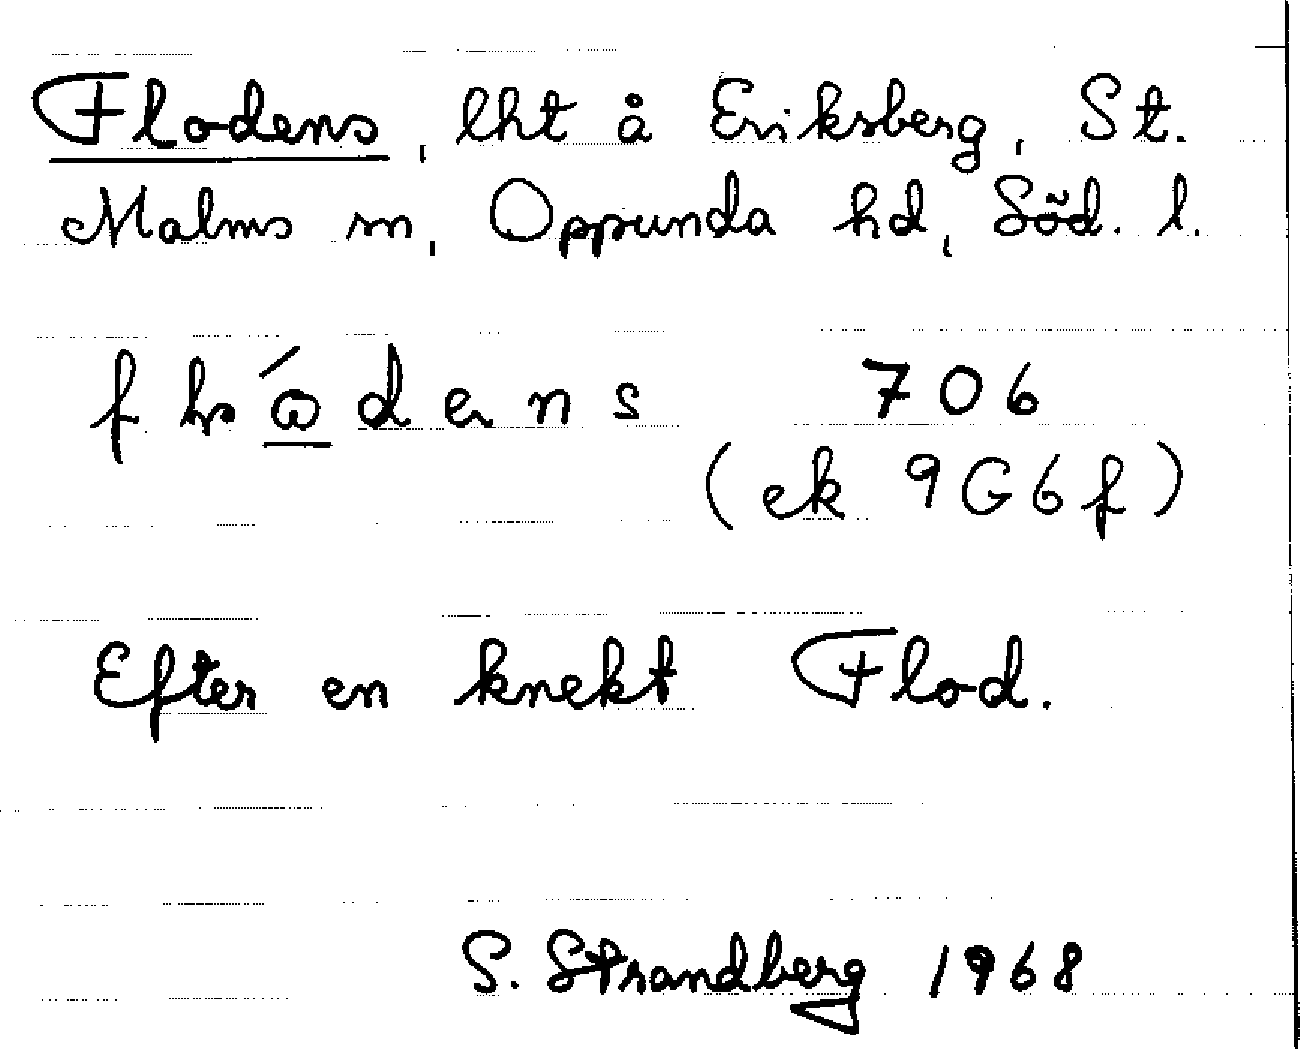 Flodens, lht å Eriksberg, St.
Malms sn, Oppunda hd, Söd. l.
706
(ek 9G6f)
Efter en knekt Flod.
S. Strandberg 1968